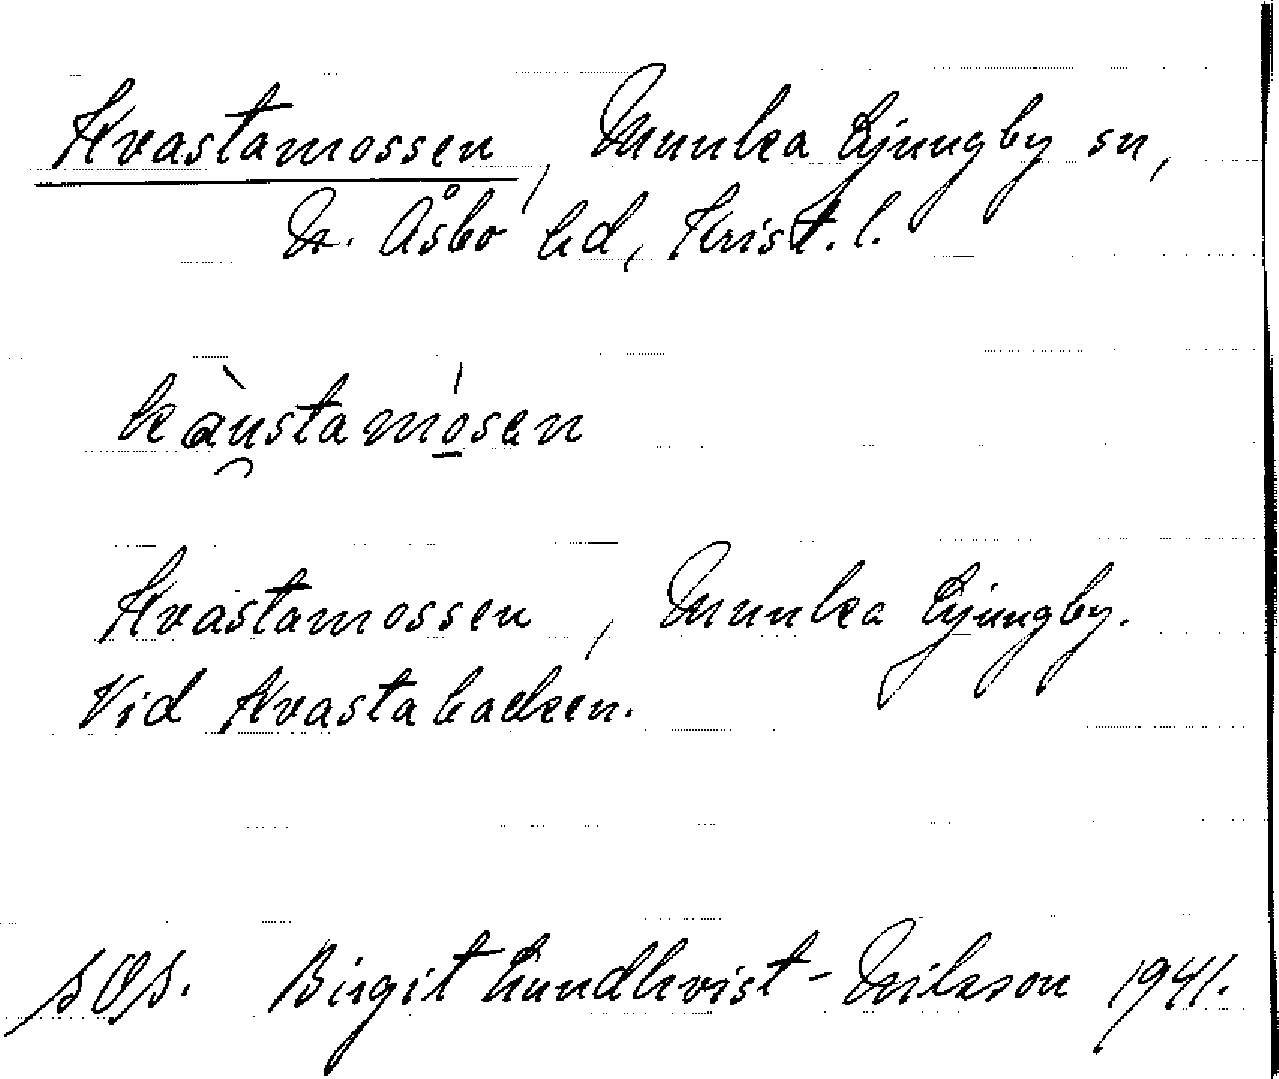 Kvastamossen, Munka Ljungby sn,
N. Åsbo hd, Krist. l.
kàu̯stamó̠sen
Kvastamossen, Munka Ljungby.
Vid Kvastabacken.
SOS. Birgit Lundkvist-Nilsson 1941.